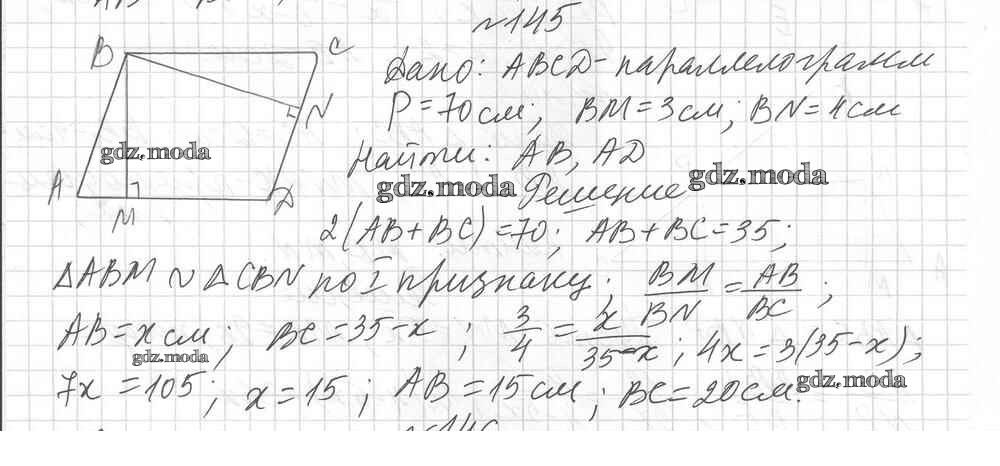 №145
B C
Дано: ABCD - параллелограмм
P = 70 см; BM = 3 см; BN = 4 см
N
gdz.moda
Найти: AB, AD
A
gdz.moda
gdz.moda
Решение
M D
2(AB + BC) = 70; AB + BC = 35;
△ABM ~ △CBN по I признаку; BM/BN = AB/BC;
AB = x см; BC = 35 - x; 3/4 = x/35-x; 4x = 3(35 - x);
gdz.moda
7x = 105; x = 15; AB = 15 см; BC = 20 см.
gdz.moda